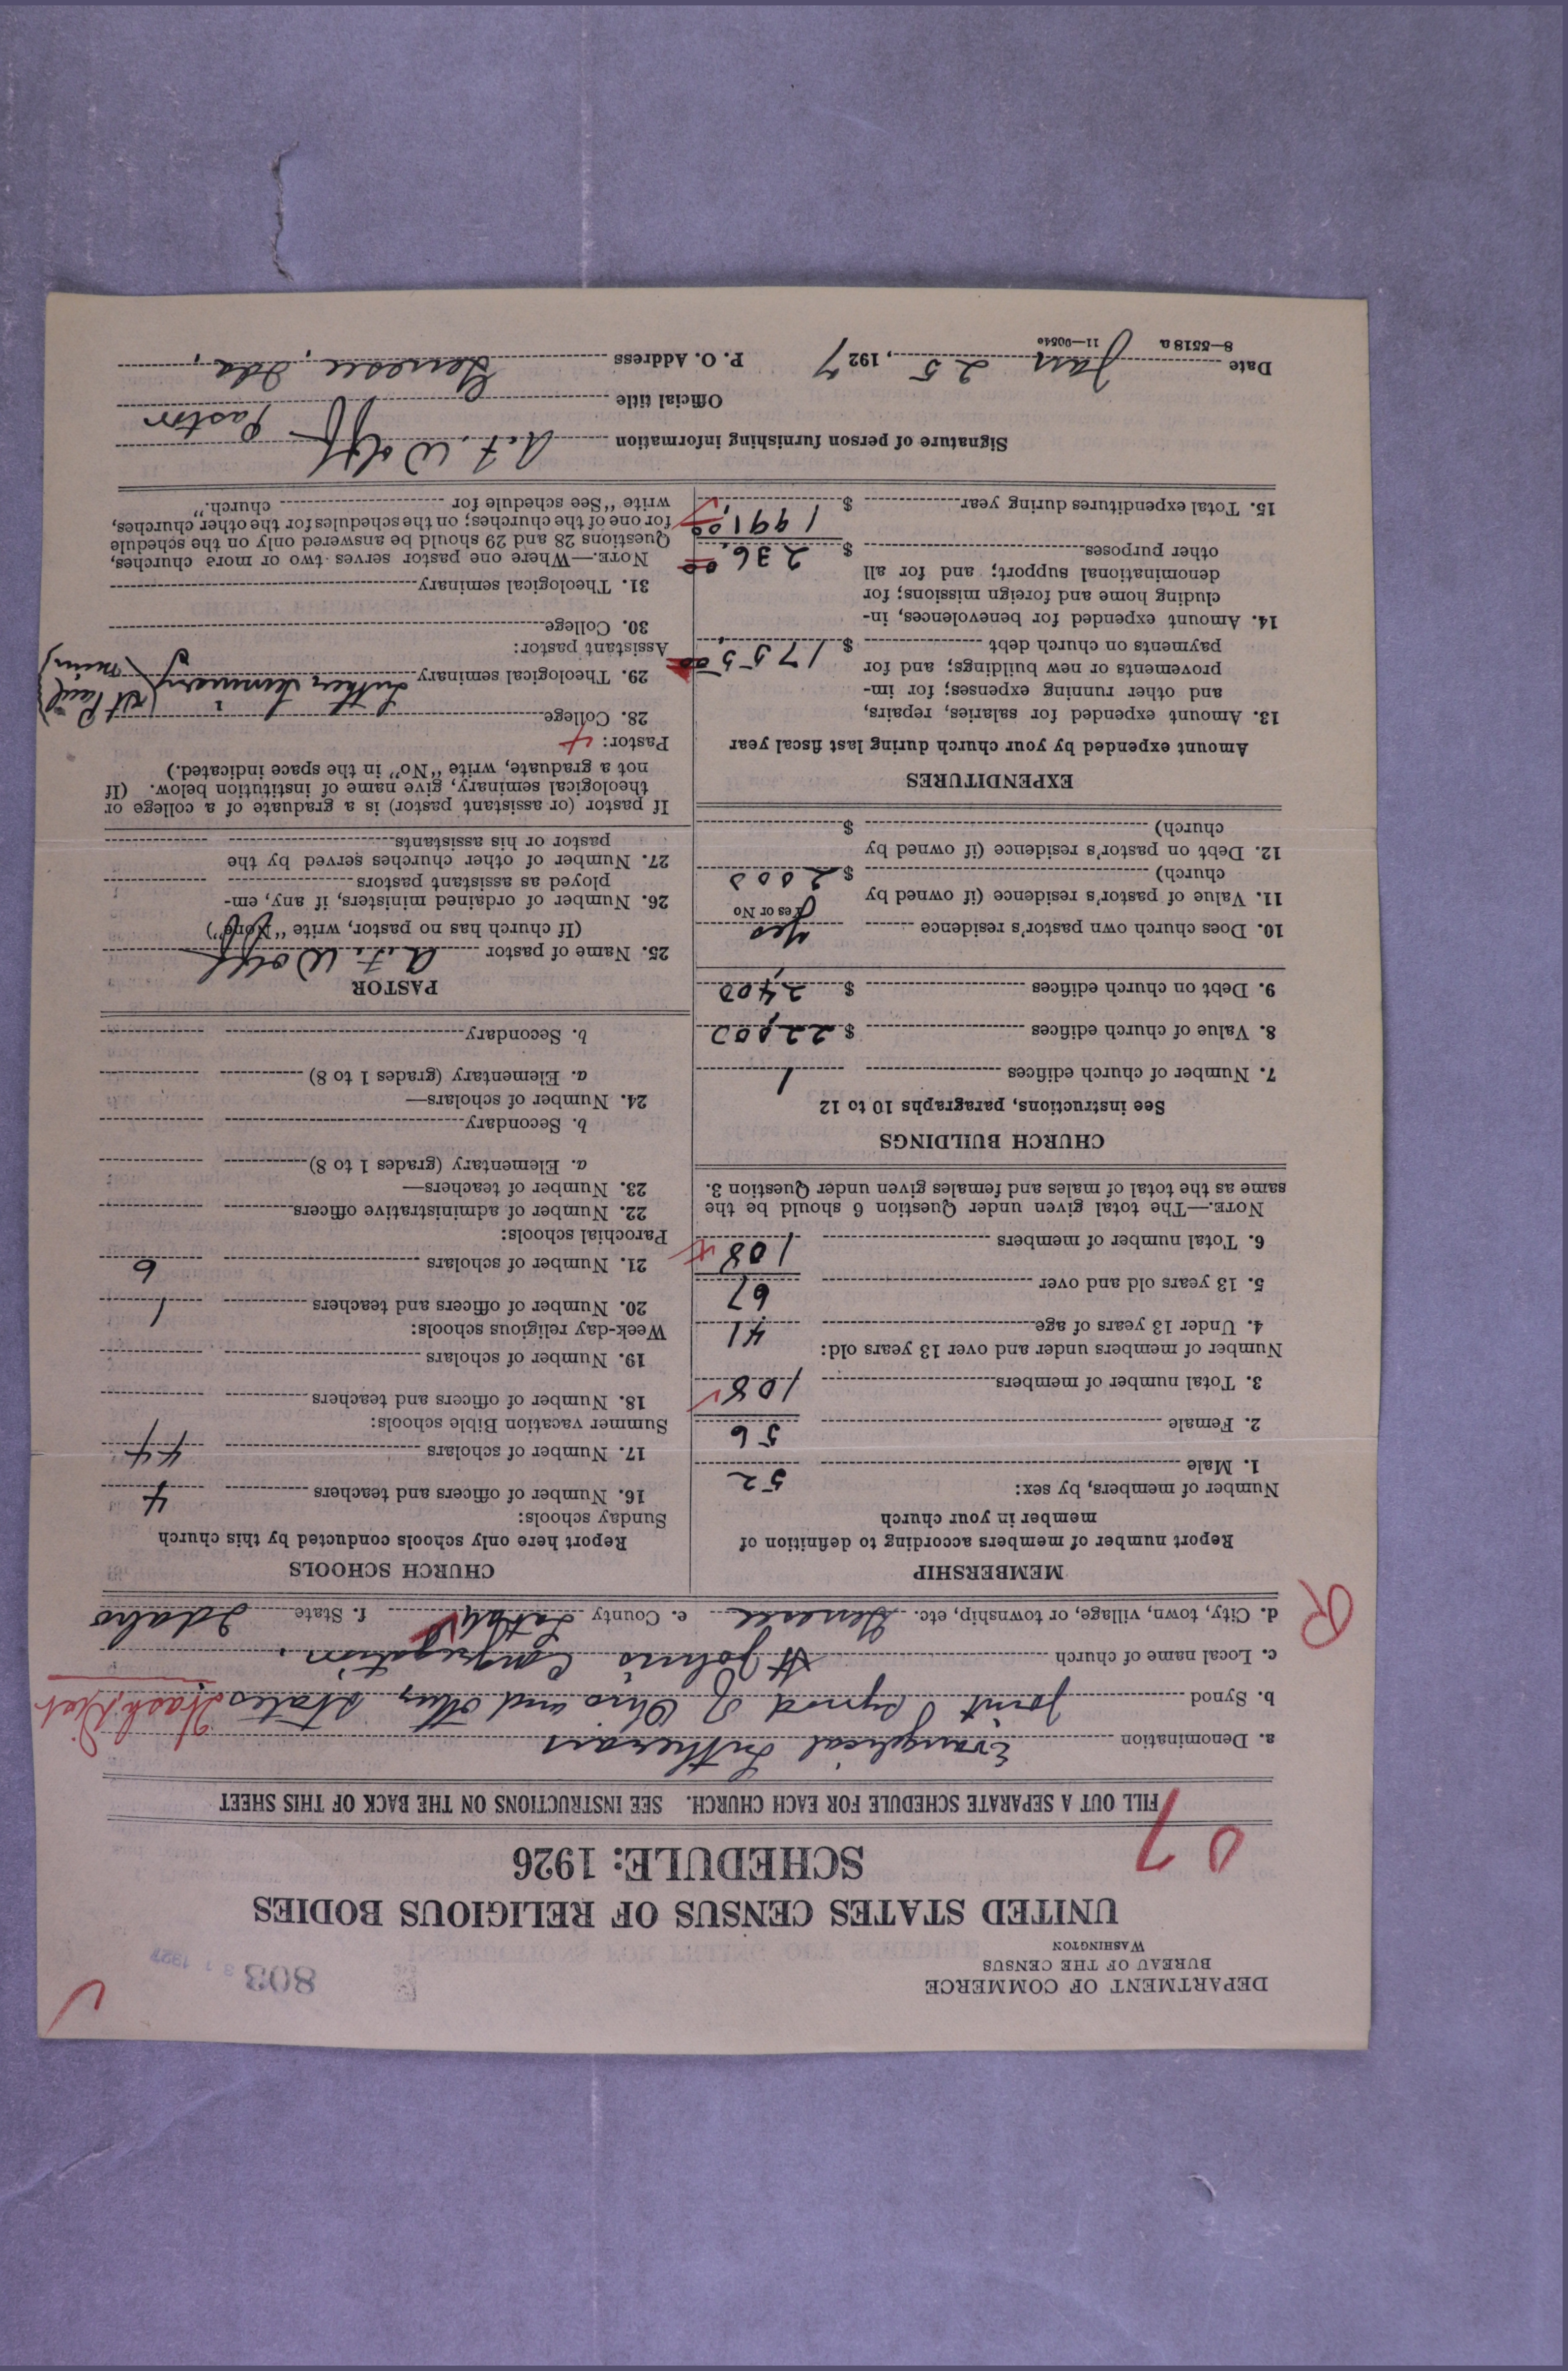 DEPARTMENT OF COMMERCE
BUREAU OF THE CENSUS
WASHINGTON
803
UNITED STATES CENSUS OF RELIGIOUS BODIES
SCHEDULE: 1926
07
FILL OUT A SEPARATE SCHEDULE FOR EACH CHURCH. SEE INSTRUCTIONS ON THE BACK OF THIS SHEET
a. Denomination Evangelical Lutherans
b. Synod Joint Synod of Ohio and other States Wash. Dist
c. Local name of church St Johns Congregation.
d. City, town, village, or township, etc. Genesee e. County Latah f. State Idaho
R
MEMBERSHIP
Report number of members according to definition of
member in your church
Number of members, by sex:
1. Male 52
2. Female 56
3. Total number of members 108
Number of members under and over 13 years old:
4. Under 13 years of age 41
5. 13 years old and over 67
6. Total number of members 108
NOTE.—The total given under Question 6 should be the
same as the total of males and females given under Question 3.
CHURCH BUILDINGS
See instructions, paragraphs 10 to 12
7. Number of church edifices 1
8. Value of church edifices $ 22,000
9. Debt on church edifices $ 2,400
10. Does church own pastor's residence Yes
Yes or No
11. Value of pastor's residence (if owned by
church) $ 2000
12. Debt on pastor's residence (if owned by
church) $
EXPENDITURES
Amount expended by your church during last fiscal year
13. Amount expended for salaries, repairs,
and other running expenses; for im-
provements or new buildings; and for
payments on church debt $ 1755.00
14. Amount expended for benevolences, in-
cluding home and foreign missions; for
denominational support; and for all
other purposes $ 236.00
15. Total expenditures during year $ 1991.00
CHURCH SCHOOLS
Report here only schools conducted by this church
Sunday schools:
16. Number of officers and teachers 4
17. Number of scholars 44
Summer vacation Bible schools:
18. Number of officers and teachers
19. Number of scholars
Week-day religious schools:
20. Number of officers and teachers 1
21. Number of scholars 6
Parochial schools:
22. Number of administrative officers
23. Number of teachers—
a. Elementary (grades 1 to 8)
b. Secondary
24. Number of scholars—
a. Elementary (grades 1 to 8)
b. Secondary
PASTOR
25. Name of pastor A.F. Wolff
(If church has no pastor, write "None")
26. Number of ordained ministers, if any, em-
ployed as assistant pastors
27. Number of other churches served by the
pastor or his assistants
If pastor (or assistant pastor) is a graduate of a college or
theological seminary, give name of institution below. (If
not a graduate, write "No" in the space indicated.)
Pastor:
28. College
29. Theological seminary Luther Seminary (St Paul Minn)
Assistant pastor:
30. College
31. Theological seminary
NOTE.—Where one pastor serves two or more churches,
Questions 28 and 29 should be answered only on the schedule
for one of the churches; on the schedules for the other churches,
write "See schedule for church."
Signature of person furnishing information A.F. Wolff
Official title Pastor
Date Jan 25, 1927 P. O. Address Genesee, Ida.
8—5518a 11—9054a